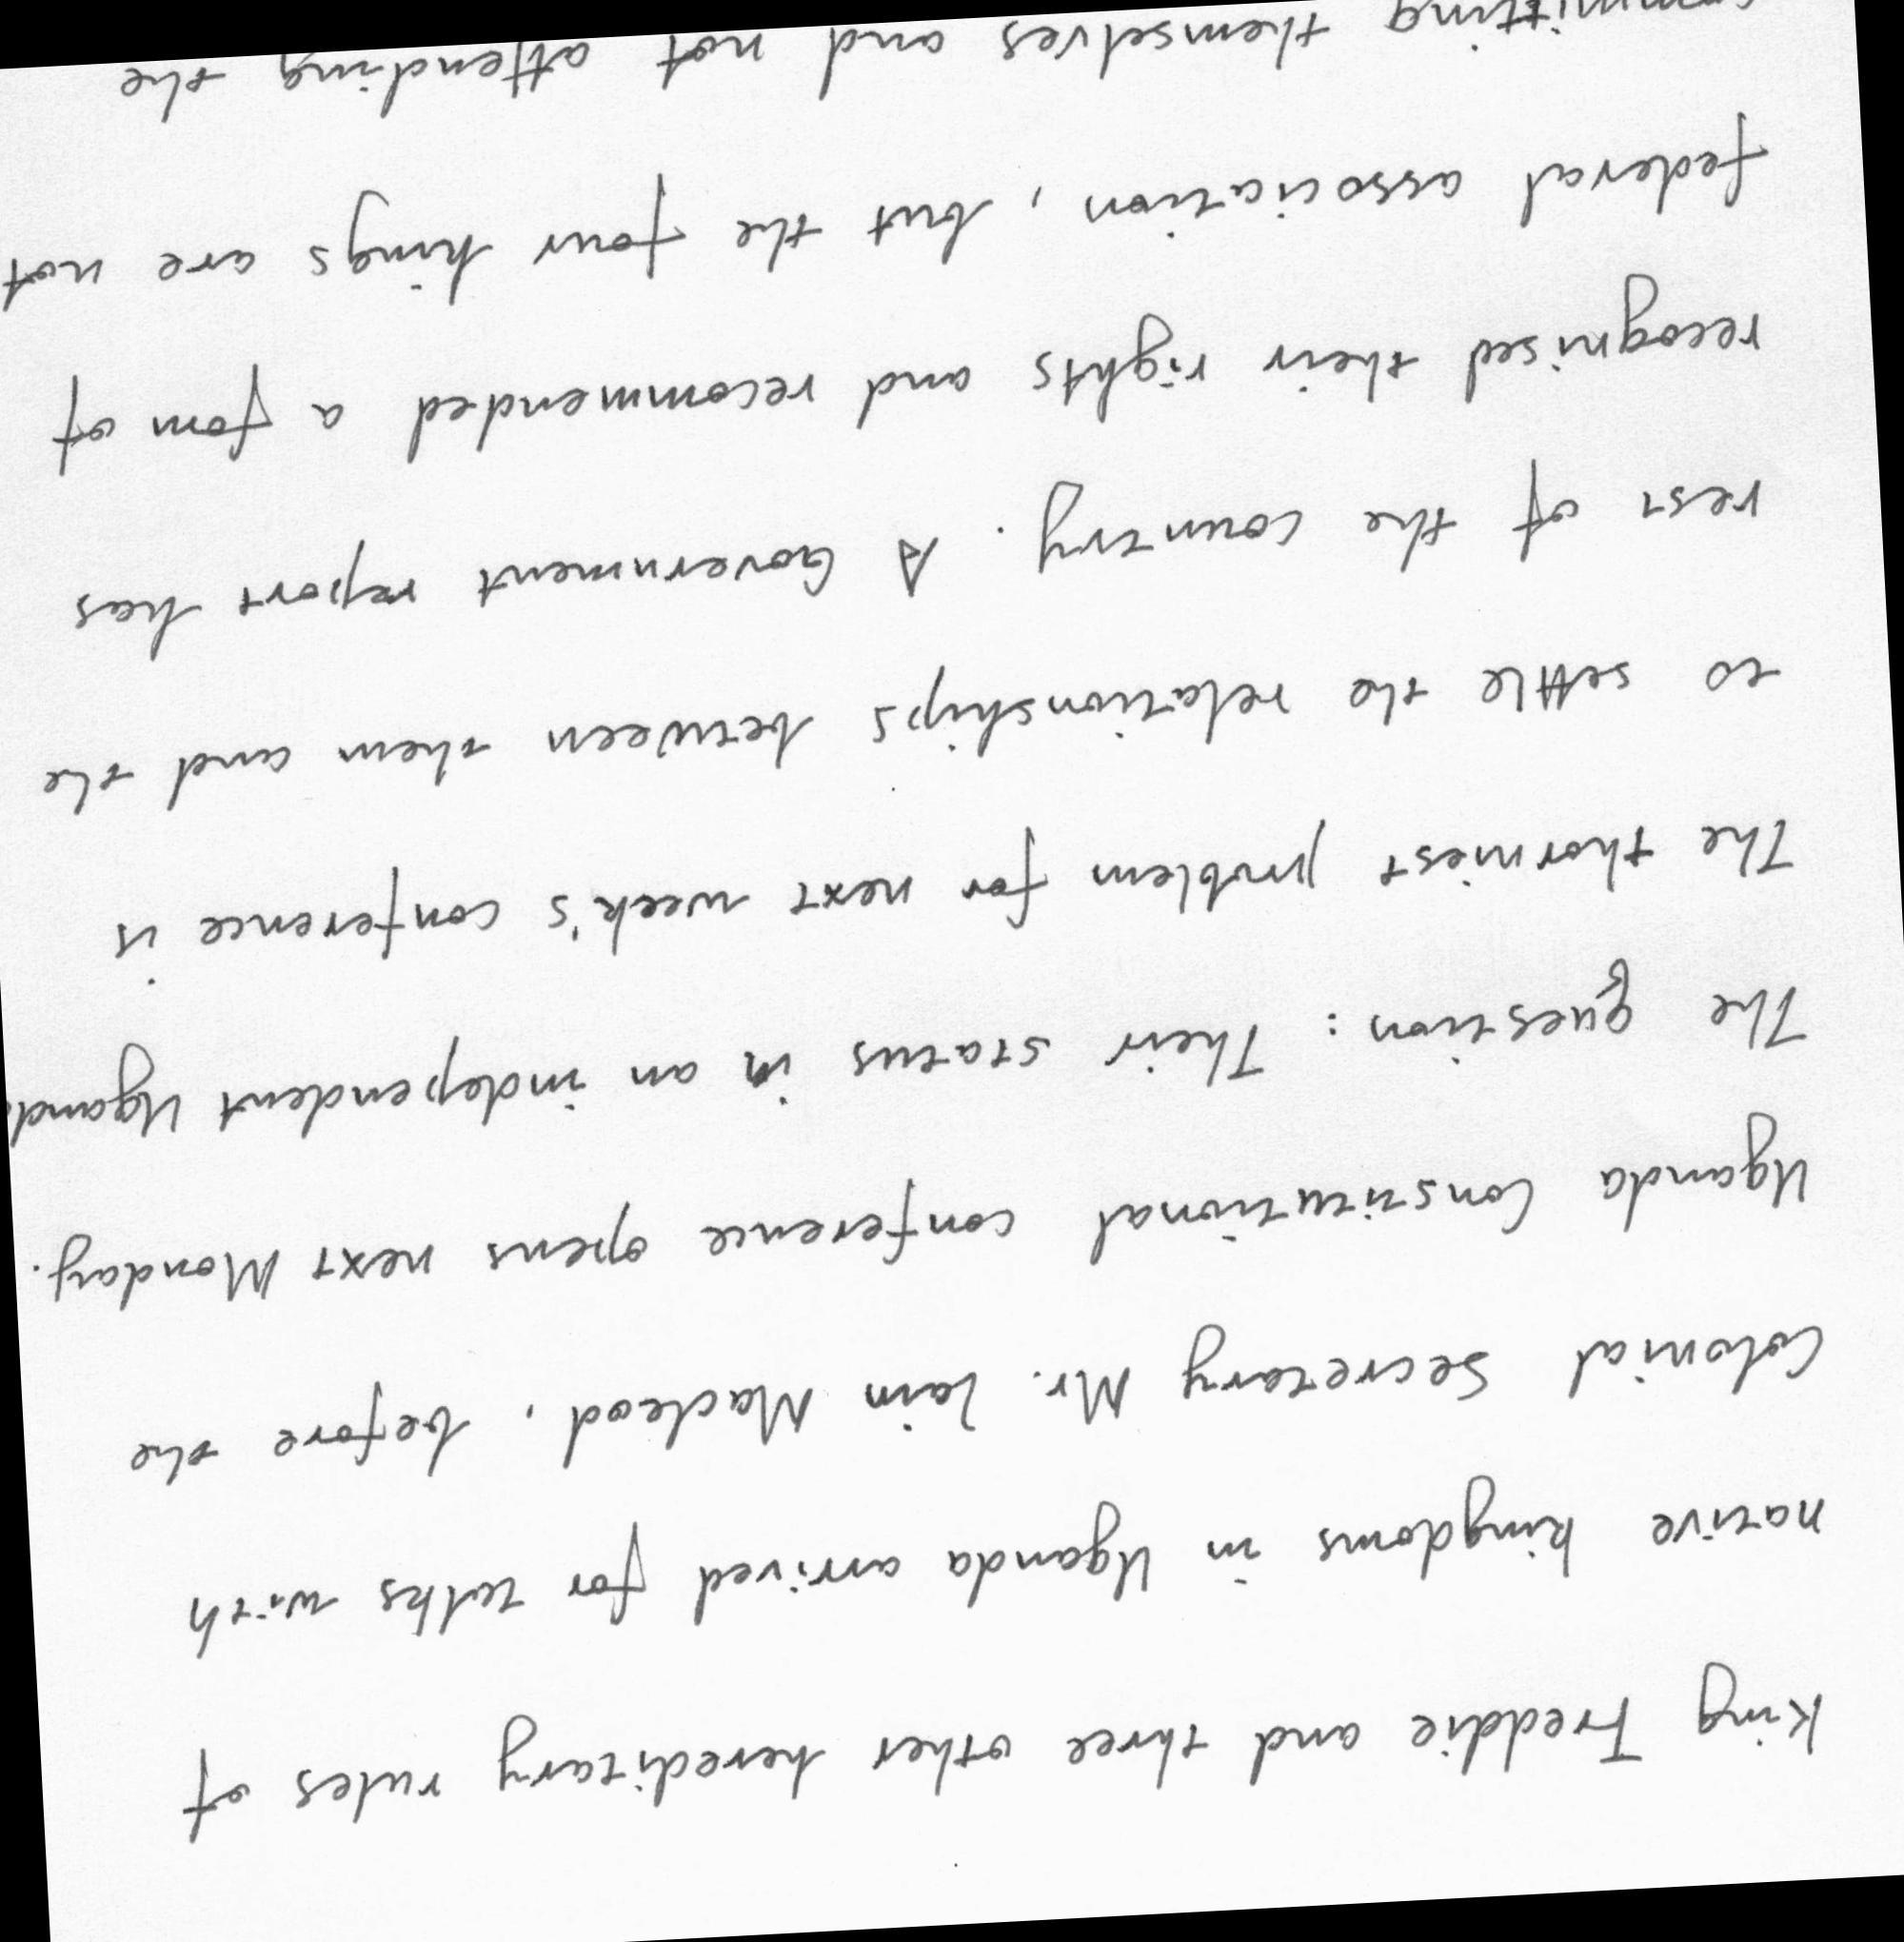 King Freddie and three other hereditary rules of
native kingdoms in Uganda arrived for talks with
Colonial Secretary Mr. Iain Macleod, before the
Uganda Constitutional conference opens next Monday.
The question: Their status in an independent Ugand
The thorniest problem for next week's conference is
to settle the relationships between them and the
rest of the country. A Government report has
recognised their rights and recommended a fom of
federal association, but the four kings are not
committing themselves and not attending the